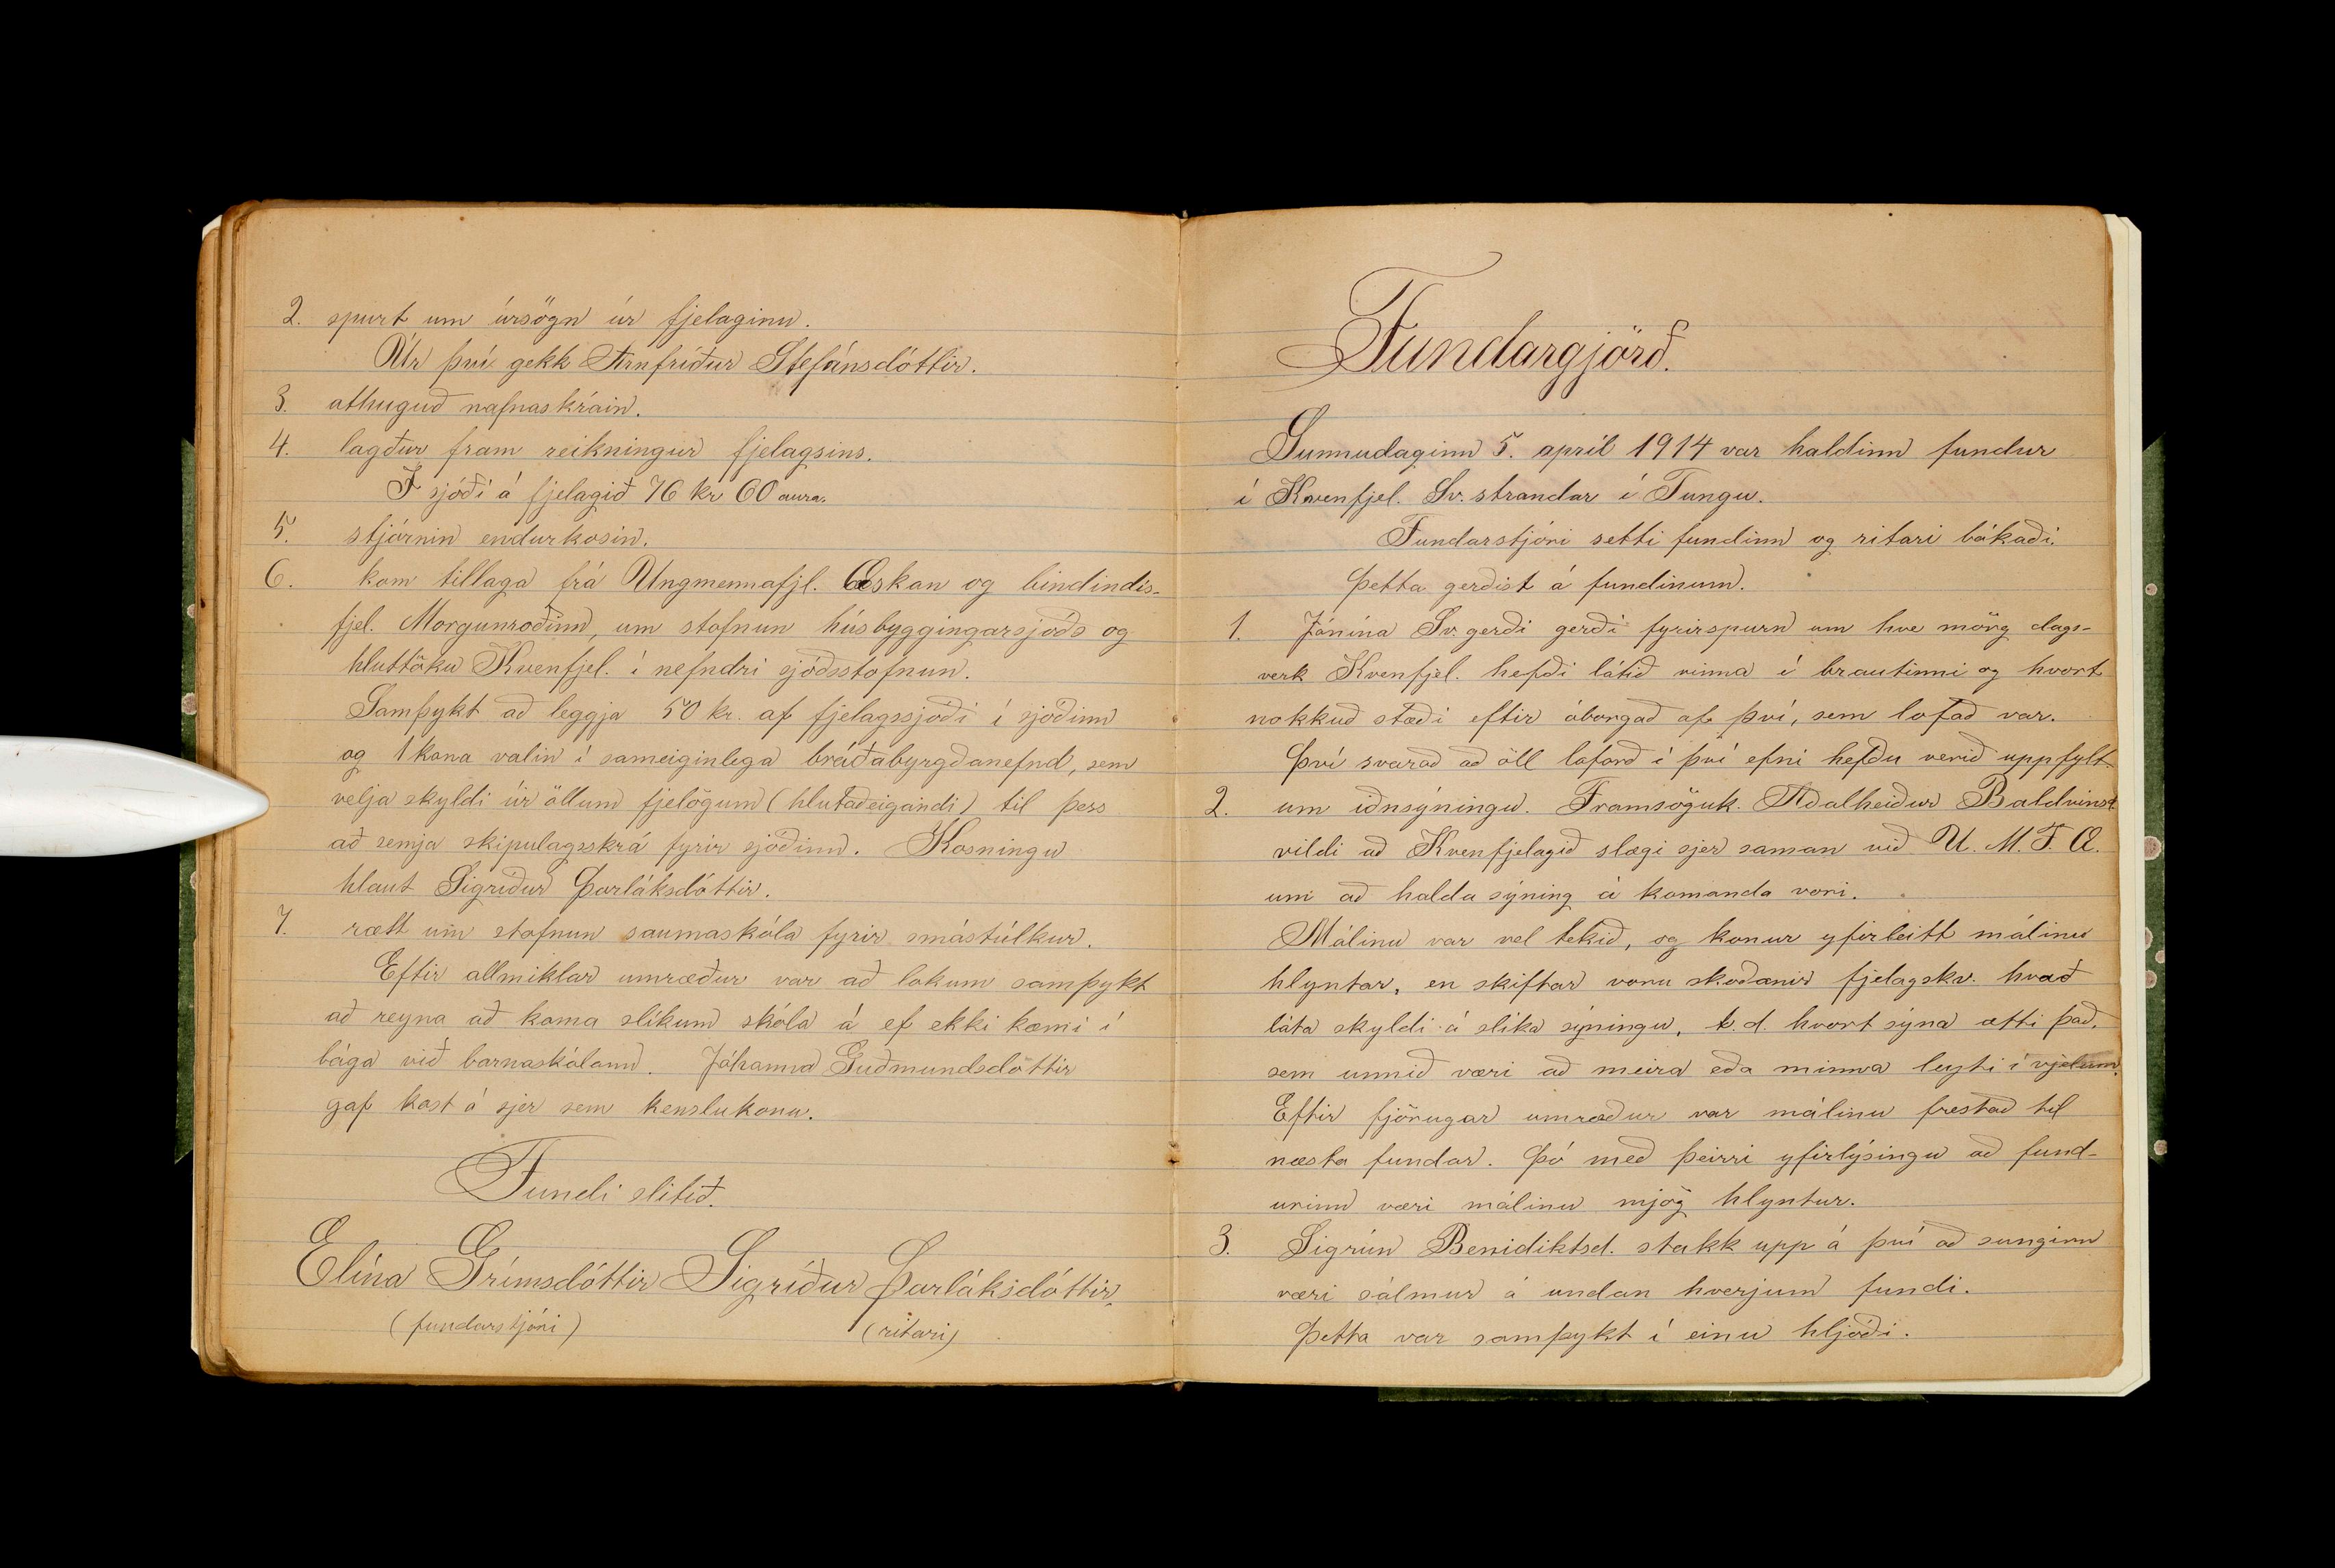 2. spurt um úrsögn úr fjelaginu.
Úr því gekk Arnfríður Stefánsdóttir.
3. athuguð nafnaskráin.
4. lagður fram reikningur fjelagsins.
Í sjóði á fjelagið 76 kr 60 aura.
5. stjórnin endurkosin.
6. kom tillaga frá Ungmennafjl. Æskan og bindindis-
fjel. Morgunroðinn, um stofnun húsbyggingarsjóðs og
hluttöku Kvenfjel. í nefndri sjóðsstofnun.
Samþykt að leggja 50 kr. af fjelagssjóði í sjóðinn
og 1 kona valin í sameiginlega bráðabyrgðanefnd, sem
velja skyldi úr öllum fjelögum (hlutaðeigandi) til þess
að semja skipulagsskrá fyrir sjóðinn. Kosningu
hlaut Sigríður Þorláksdóttir.
7. rætt um stofnun saumaskóla fyrir smástúlkur.
Eftir allmiklar umræður var að lokum samþykt
að reyna að koma slíkum skóla á ef ekki kæmi í
bága við barnaskólann. Jóhanna Guðmundsdóttir
gaf kost á sjer sem kenslukonu.
Fundi slitið.
Elína Grímsdóttir Sigríður Þorláksdóttir.
(fundarstjóri) (ritari)
Fundargjörð.
Sunnudaginn 5. apríl 1914 var haldinn fundur
í Kvenfjel. Sv.strandar í Tungu.
Fundarstjóri setti fundinn og ritari bókaði.
Þetta gerðist á fundinum.
1. Jónína Sv.gerði gerði fyrirspurn um hve mörg dags-
verk Kvenfjel. hefði látið vinna í brautinni og hvort
nokkuð stæði eftir óborgað af því, sem lofað var.
Því svarað að öll loforð í því efni hefðu verið uppfylt.
2. um iðnsýningu. Framsöguk. Aðalheiður Baldvinsd.
vildi að Kvenfjelagið slægi sjer saman við U. M. F. Æ.
um að halda sýning á komanda vori.
Málinu var vel tekið, og konur yfirleitt málinu
hlyntar, en skiftar voru skoðanir fjelagskv. hvað
láta skyldi á slíka sýningu, t.d. hvort sýna ætti það,
sem unnið væri að meira eða minna leyti í vjelum.
Eftir fjörugar umræður var málinu frestað til
næsta fundar. Þó með þeirri yfirlýsingu að fund-
urinn væri málinu mjög hlyntur.
3. Sigrún Benidiktsd. stakk upp á því að sunginn
væri sálmur á undan hverjum fundi.
Þetta var samþykt í einu hljóði.